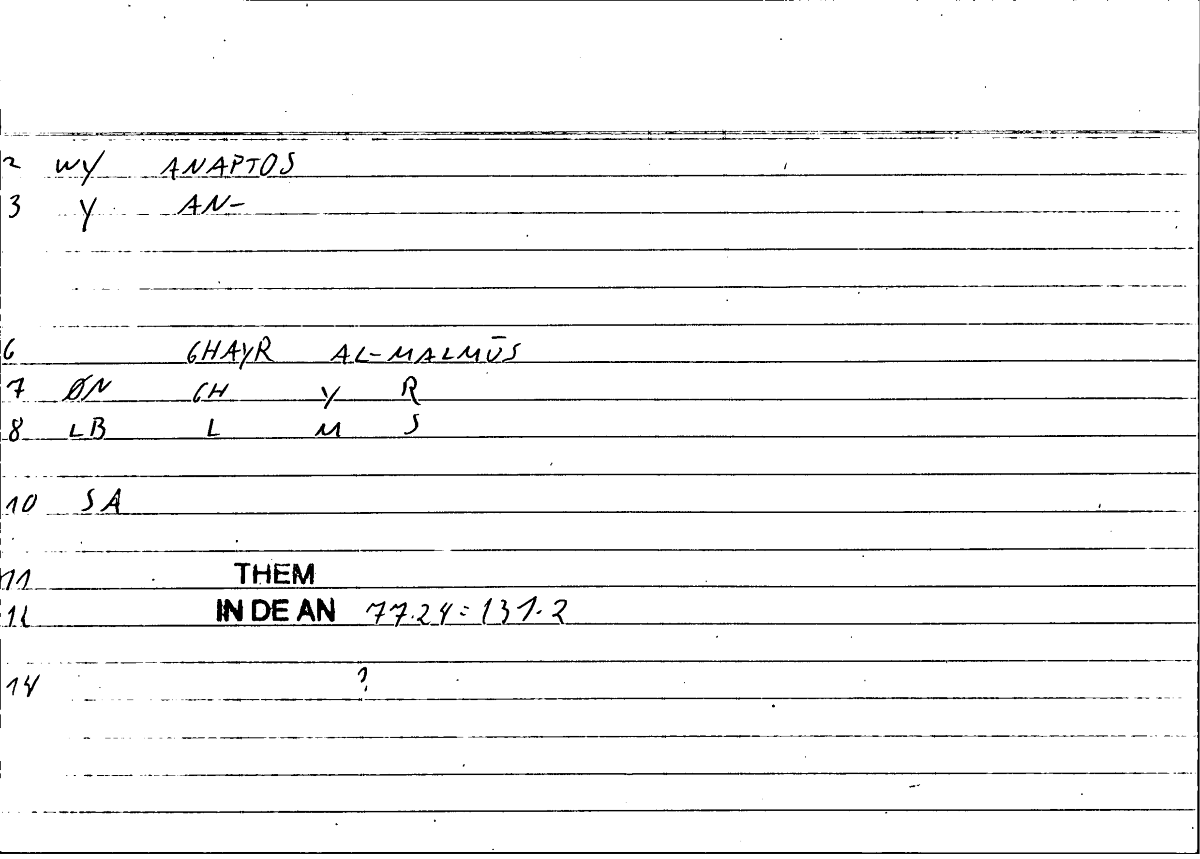 2 WY ANAPTOS
3 Y AN-
6 GHAYR AL-MALMŪS
7 ØN GH Y R
8 LB L M S
10 SA
11 THEM
12 IN DE AN 77.24=131.2
14 ?